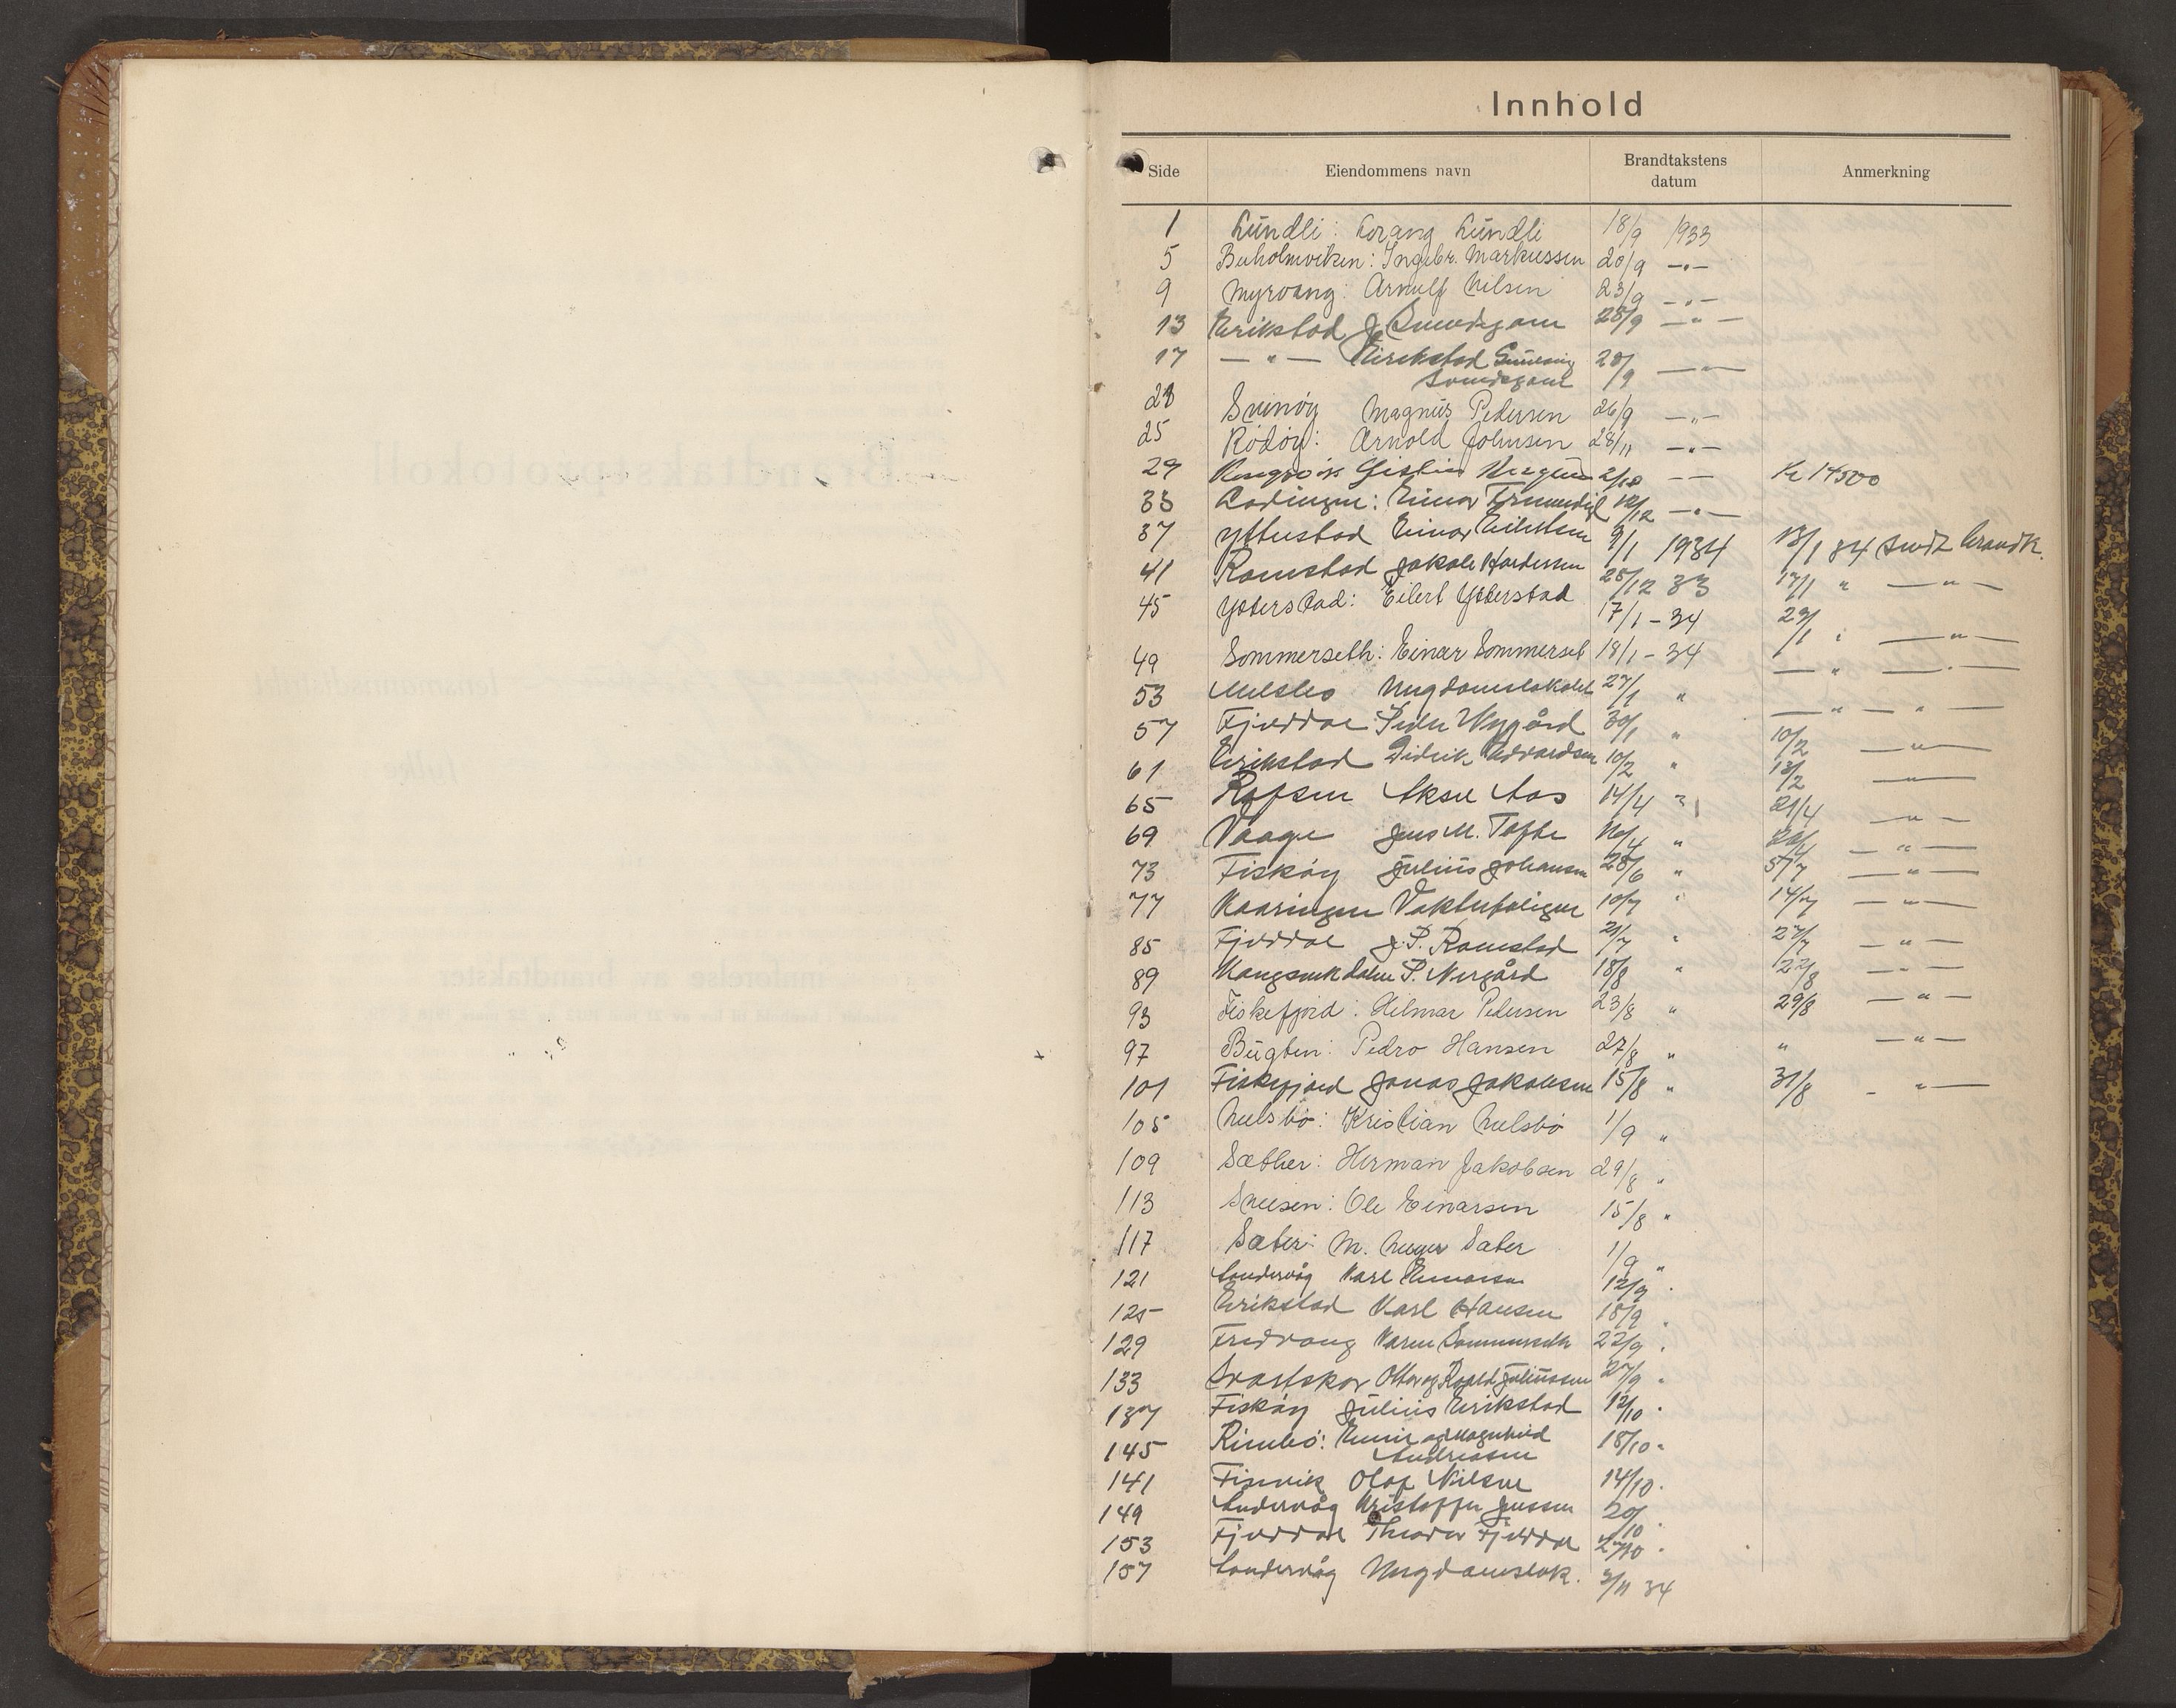 Innhold
Side Eiendommens navn Brandtakstens datum Anmerkning
1 Lundli: Lorang Lundli 18/9 1933
5 Buholmviken: Ingebr. Markussen 20/9 -"-
9 Myrvang: Arnulf Nilsen 23/9 -"-
13 Eirikstad J 25/9 -"-
17 -"- Eirikstad 20/9 -"-
21 Svinøy Magnus Pedersen 26/9 -"-
25 Rødøy: Arnold Johnsen 28/11 -"-
29 2/12 - - Kr 14500
33 Rødingen: Einar 12/12 -"-
37 Ytterstad Einar 9/1 1934 13/1 34 sendt brandk.
41 Ramstad Jakob 28/12 33 17/1 " -"-
45 Ytterstad: Eilert Ytterstad 17/1 - 34 23/1 " -"-
49 Sommerseth: Einar Sommerset 18/1 - 34 -"- -"-
53 Nelsbø Ungdomslokalet 27/1 " -"- " -
57 Fjelldal Peder Nygård 30/1 " 10/2 -"-
61 Eirikstad Didrik Edvardsen 10/2 " 13/2 -"-
65 Røfsen Aksel Aas 14/4 " 21/4 -"-
69 Vaage Jens M. Tofte 16/4 " -"-
73 Fiskøy Julius Johansen 28/6 " 5/7 -"-
77 Kaaringen Vokterboligen 10/7 " 14/7 -"-
85 Fjelldal J. P. Ramstad 21/7 " 27/7 -"-
89 Kongsvikdalen P. Nergård 18/8 " 22/8 -"-
93 Fiskefjord: Helmar Pedersen 23/8 " 29/8 -"-
97 Bugten: Pedro Hansen 27/8 " " -"-
101 Fiskefjord Jonas Jakobsen 15/8 " 31/8 - "-
105 Nelsbø: Kristian Nelsbø 1/9 "
109 Sæther: Herman Jakobsen 29/8 "
113 Sneisen: Ole Einarsen 15/8 "
117 Sæter: M. Meyer Sæter 1/9 "
121 Sandervåg Karl Einarsen 12/9 "
125 Eirikstad Karl Hansen 18/9 "
129 Fredvang Karen Sommerseth 22/9 "
133 Svartskar Ottar og Roald Juliussen 27/9 "
137 Fiskøy Julius Eirikstad 12/10 "
145 Rimbø: og Magnhild 18/10 "
Andreassen
141 Finvik Olaf Nilsen 14/10 "
149 Sandervåg Kristoffer Jenssen 20/10 "
153 Fjelldal Theodor Fjelldal 27/10 "
157 Sandervåg Ungdomslok. 3/11 34